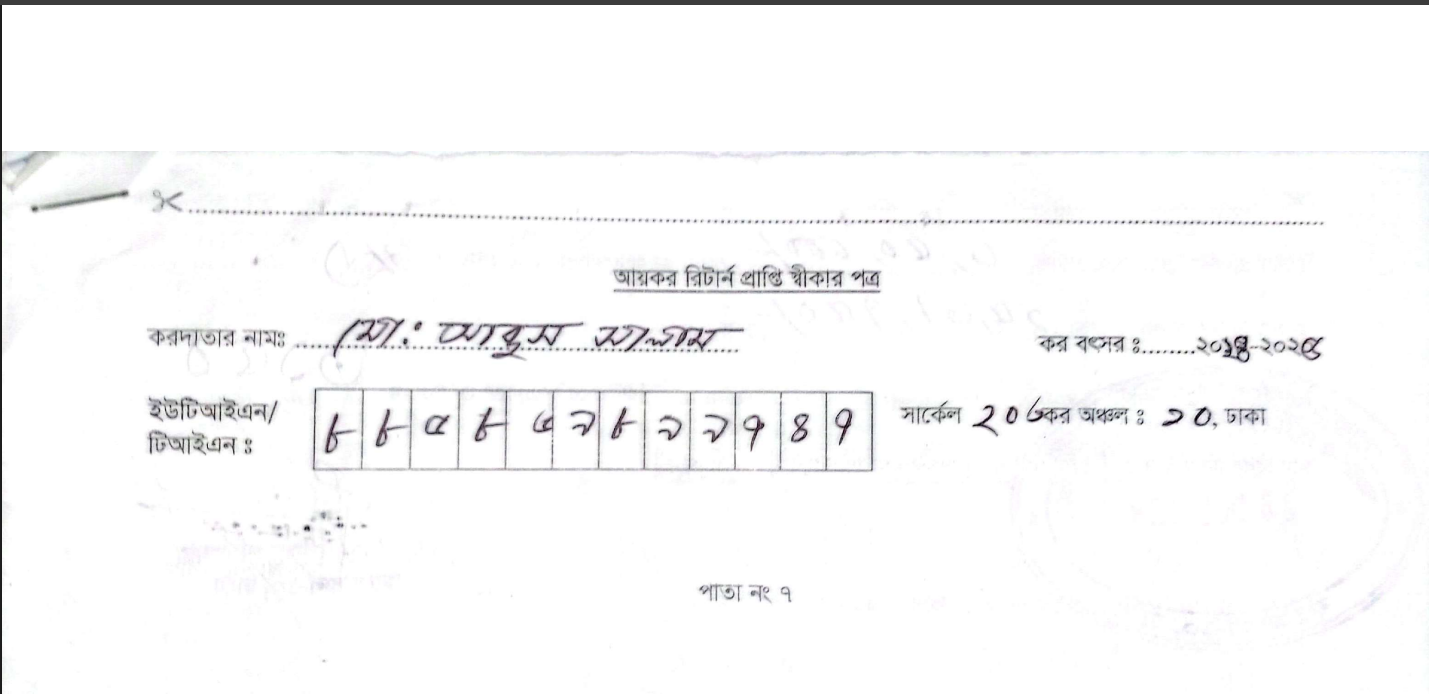 আয়কর রিটার্ন প্রাপ্তি স্বীকার পত্র
করদাতার নামঃ মো: আব্দুস সালাম কর বৎসর ঃ ........২০২৪-২০২৫
ইউটিআইএন/
টিআইএন ঃ ৮৮৫৮৫২৮২২৭৪৭ সার্কেল ২০৬ কর অঞ্চল ঃ ১০, ঢাকা
পাতা নং ৭